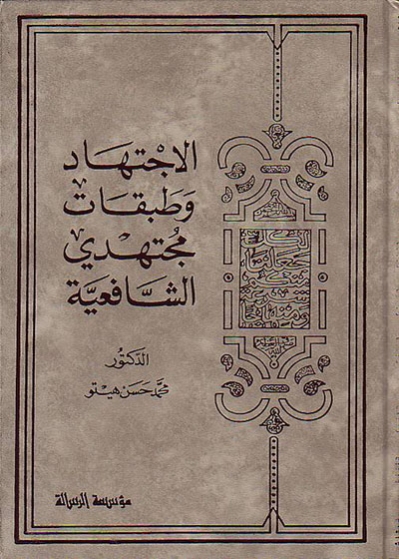 الاجْتهَاد
وَطبَقَات
مجُتهَدِي
الشَّافعيَّة
الدكتوُر
محمّد حَسَن هيتو
مؤسسة الرسالة